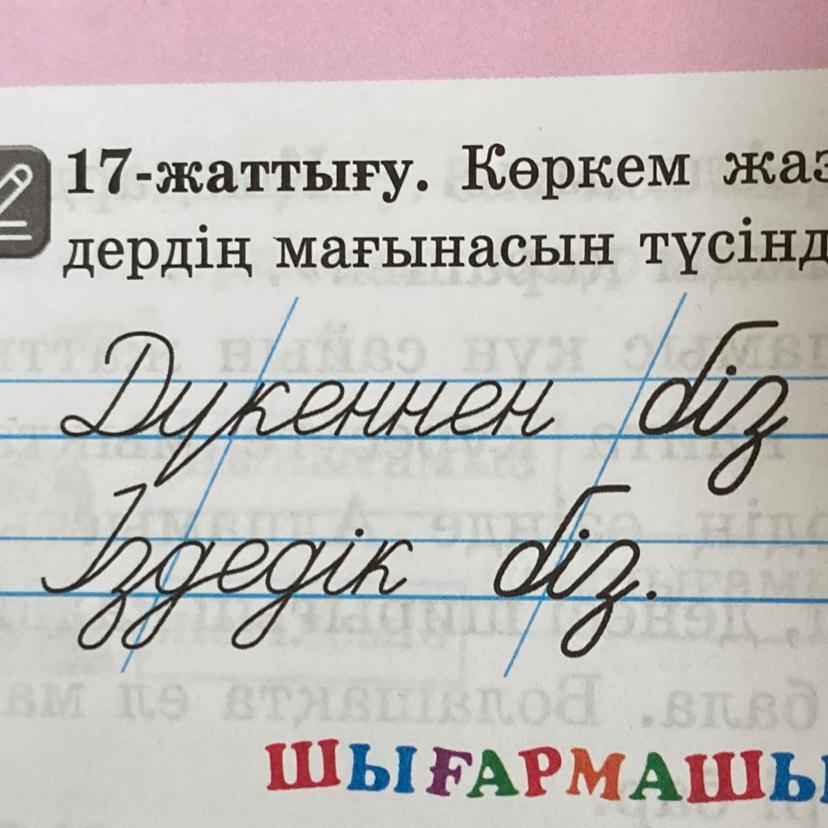 17-жаттығу. Көркем жаз
дердің мағынасын түсінд
Дукеннен біз
Іздедік біз.
ШЫҒАРМАШЫ